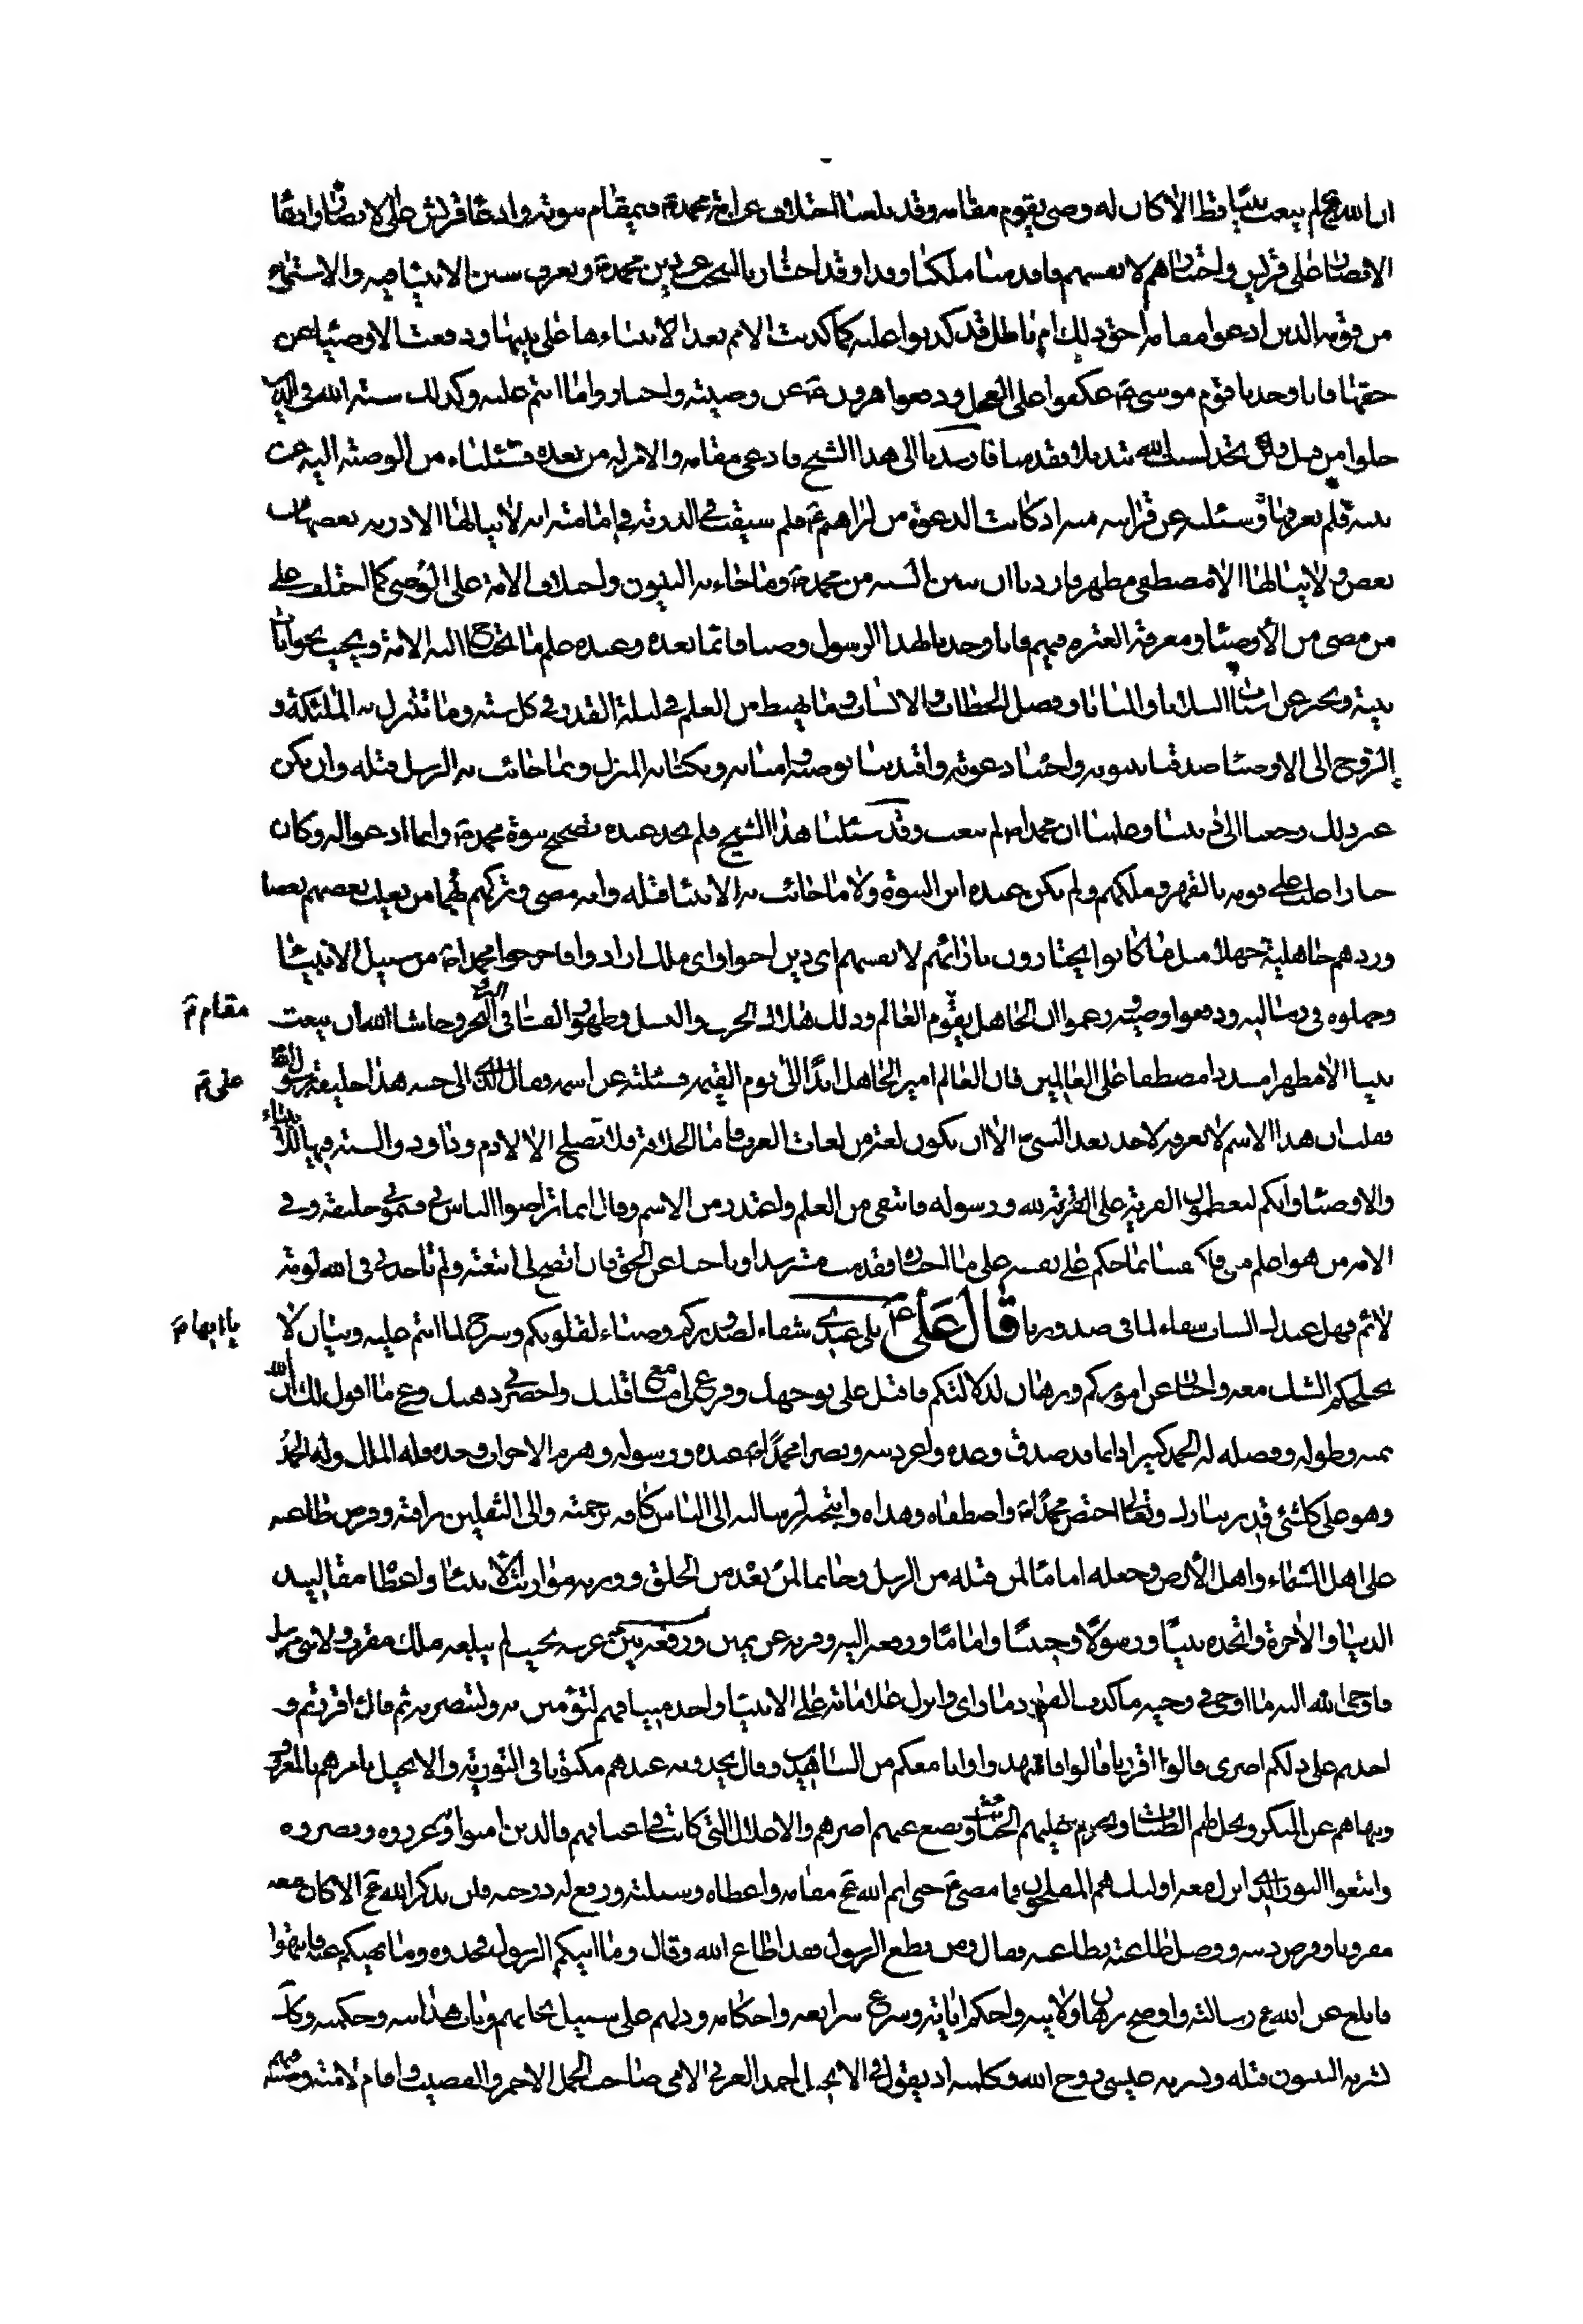 ان الله عج لم يبعث نبيا قط الا كان له وصى يقوم مقامه وقد بلغنا اختلاف عن امة محمد ص فى مقام نبوته وادعا قريش على الانصار وادعا
الانصار على قريش واختيارهم لانفسهم فاقدمنا ملكنا وفدا وقد اختارنا لنبحث عن دين محمد ص ونعرف سنن الانبيا فيه والاستماع
من قومه الذين ادعوا مقامه احق ذلك ام باطل قد كذبوا عليه كما كذبت الامم بعد الانبياءها على نبيها ودفعت الاوصيا عن
حقها فانا وجدنا قوم موسى ع عكفوا على العجل ودفعوا هرون ع عن وصيته واختاروا ما انتم عليه وكذلك سنة الله فى الذين
خلوا من قبل ولن تجد لسنة الله تبديلا فقدمنا فارشدنا الى هذا الشيخ فادعى مقامه والامر له من بعده فسئلناه عن الوصية اليه عن
نبيه فلم يعرفها وسئلناه عن قرابته منه اذ كانت الدعوة من ابراهيم ع فلم سبقت فى الذرية فى امامته انه لا ينالها الا ذرية بعضها من
بعض ولا ينالها الا مصطفى مطهر فاردنا ان نتبين السنة من محمد ص وما جاء به النبيون واختلاف الامة على الوصى كما اختلفت على
من مضى من الاوصيا ومعرفة العترة فيهم فان وجدنا لهذا الرسول وصيا قائما بعده وعنده علم ما يحتاج اليه الامة ويجيب بجوابات
بينة ويخبر عن اسباب البلايا والمنايا وفصل الخطاب والانساب وما يهبط من العلم فى ليلة القدر فى كل سنة وما تنزل به الملئكة و
الروح الى الاوصيا صدقنا بنبوته واجبنا دعوته واقتدينا بوصيته وامنا به وبكتابه المنزل وبما جائت به الرسل قبله وان يكن
غير ذلك رجعنا الى ديننا وعلمنا ان محمدا ص لم يبعث وقد سئلنا هذا الشيخ فلم نجد عنده تصحيح نبوة محمد ص وانما ادعوا له وكان
جبارا غلب على قومه بالقهر وملكهم ولم يكن عنده اثر النبوة ولا ما جائت به الانبيا قبله وانه مضى وتركهم بهما من يغلب بعضهم بعضا
وردهم جاهلية جهلا مثل ما كانوا يختارون بارائهم لانفسهم اى دين احبوا واى ملك ارادوا فاخرجوا محمدا ص من سبيل الانبيا
وجهلوه فى رسالته ودفعوا وصيته وزعموا ان الجاهل يقوم العالم وذلك هلاك الحرث والنسل وظهور الفساد فى البر والبحر وحاشا الله ان يبعث
مقام م
نبيا الا مطهرا مسددا مصطفا على العالمين فان العالم امير الجاهل ابدا الى يوم القيمة فسئلته عن اسمه فقال الذى الى جنبه هذا خليفة رسول الله
على م
فقلت ان هذا الاسم لا نعرفه لاحد بعد النبى الا ان يكون لغة من لغات العرب فاما الخلافة فلا تصلح الا لادم وداود والسنة فيها للانبياء
والاوصيا وانكم لتعظمون الفرية على الله ورسوله فانتفى من العلم واعتذر من الاسم وقال انما تراضوا الناس بى فسمونى خليفة وفى
الامر من هو اعلم منى فاكتفينا بما حكم على نفسه وعلى من اختاره فقدمت مسترشدا وباحثا عن الحق فان اتضح لى اتبعته ولم تاخذنى فى الله لومة
لائم فهل عندك ايها الشاب شفاء لما فى صدورنا قال على ع بلى عندى شفاء لصدوركم وضياء لقلوبكم وشرح لما انتم عليه وبيان لا
يا ايها م
يختلجكم الشك معه واخبار عن اموركم وبرهان لدلالتكم فاقبل على بوجهك وفرغ لى مسامع قلبك واحضرنى ذهنك وع ما اقول لك ان الله
بمنه وطوله وفضله له الحمد كثيرا دائما قد صدق وعده واعز دينه ونصر محمدا ص عبده ورسوله وهزم الاحزاب وحده فله الملك وله الحمد
وهو على كل شئى قدير تبارك وتعالى اختص محمدا ص واصطفاه وهداه وانتجبه لرسالته الى الناس كافة برحمته والى الثقلين برافته وفرض طاعته
على اهل السماء واهل الارض وجعله اماما لمن قبله من الرسل وخاتما لمن بعده من الخلق وورثه مواريث الانبيا واعطا مقاليد
الدنيا والاخرة واتخذه نبيا ورسولا وحبيبا واماما ورفعه اليه وقربه عن يمين عرشه بحيث لم يبلغه ملك مقرب ولا نبى مرسل
فاوحى الله اليه ما اوحى فى وحيه ما كذب الفؤاد ما راى وانزل علاماته على الانبيا واخذ ميثاقهم لتؤمنن به ولتنصرنه ثم قال ااقررتم و
اخذتم على ذلكم اصرى قالوا اقررنا قال فاشهدوا وانا معكم من الشاهدين وقال يجدونه عندهم مكتوبا فى التورية والانجيل يامرهم بالمعروف
وينهاهم عن المنكر ويحل لهم الطيبات ويحرم عليهم الخبائث ويضع عنهم اصرهم والاغلال التى كانت عليهم فالذين امنوا به وعزروه ونصروه
واتبعوا النور الذى انزل معه اولئك هم المفلحون فما مضى ص حتى اتم الله عج مقامه واعطاه وسيلته ورفع له درجته فلن يذكر الله عج الا كان معه
مقرونا وفرض دينه ووصل طاعته بطاعته فقال ومن يطع الرسول فقد اطاع الله وقال وما اتيكم الرسول فخذوه وما نهيكم عنه فانتهوا
فابلغ عن الله عج رسالته واوضح برهان ولايته واحكم اياته وشرع شرايعه واحكامه ودلهم على سبيل نجاتهم وباب هدايته وحكمته وكذلك
بشر به النبيون قبله وبشر به عيسى روح الله وكلمته اذ يقول فى الانجيل احمد العربى الامى صاحب الجمل الاحمر والقضيب واقام لامته وصيه فيهم